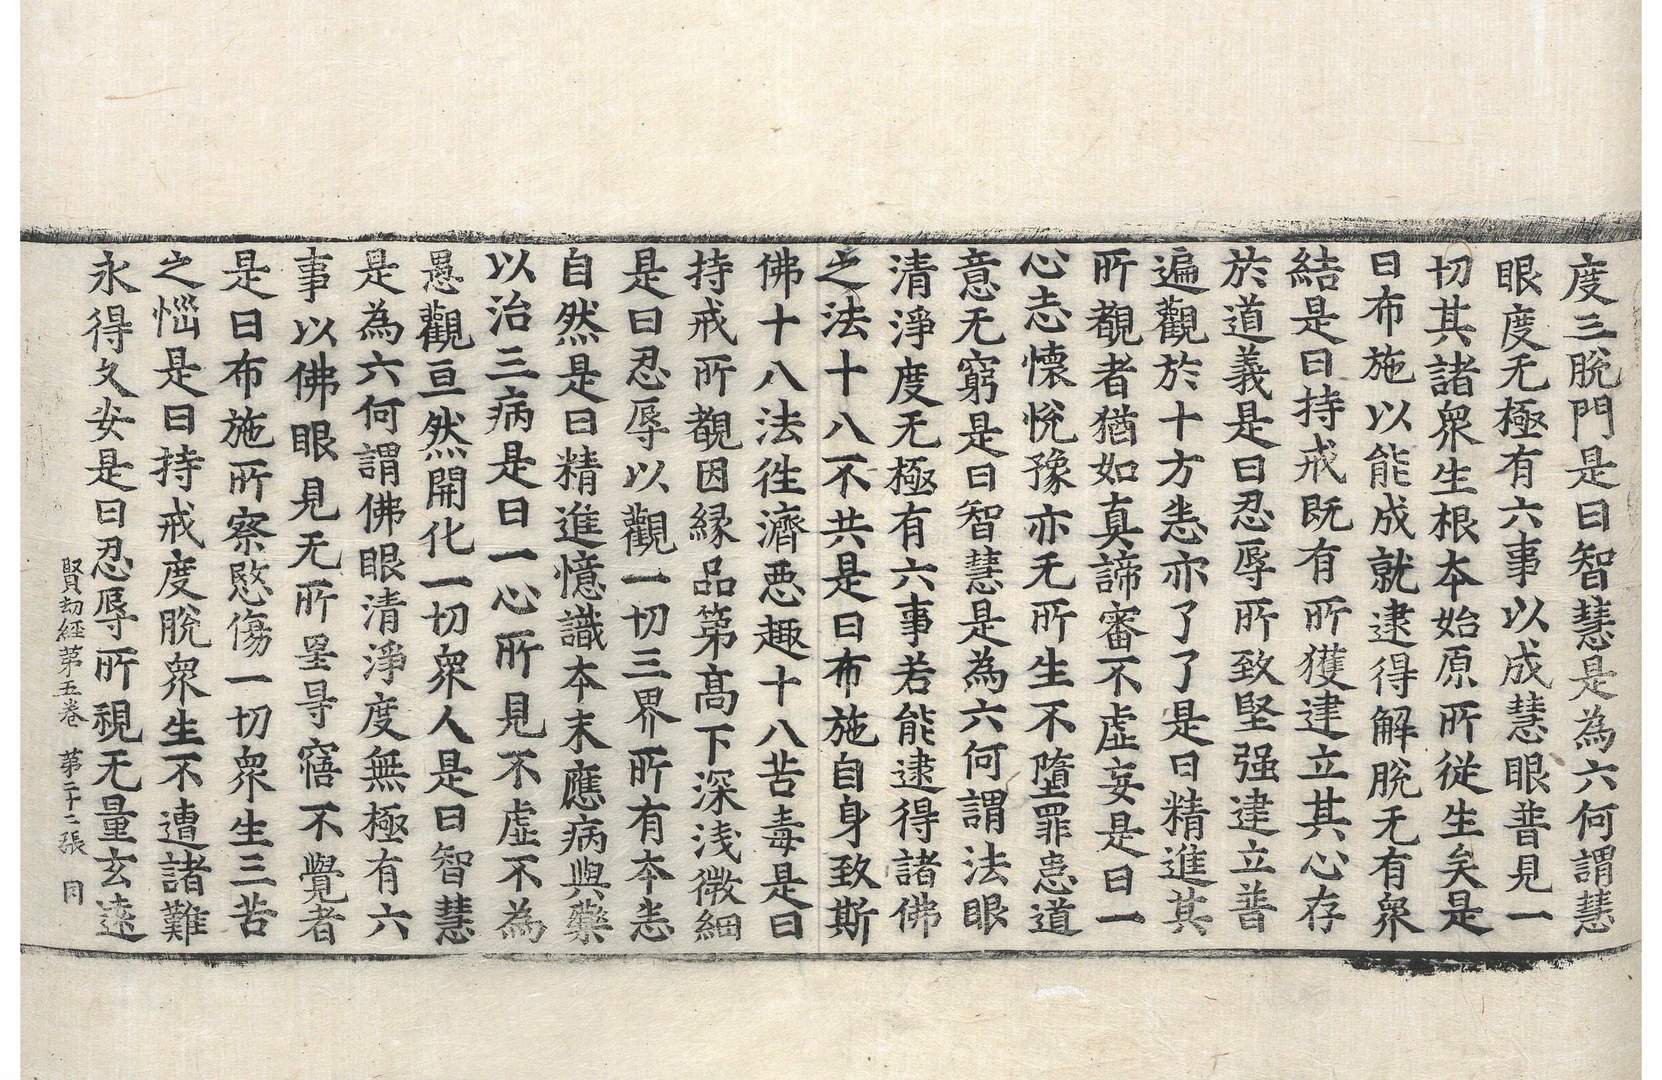 度三脫門是曰智慧是為六何謂慧
眼度无極有六事以成慧眼普見一
切其諸衆生根本始原所從生矣是
曰布施以能成就逮得解脫无有衆
結是曰持戒既有所獲建立其心存
於道義是曰忍辱所致堅强建立普
遍觀於十方恚亦了了是曰精進其
所覩者猶如真諦審不虛妄是曰一
心志懷悅豫亦无所生不墮罪患道
意无窮是曰智慧是為六何謂法眼
清淨度无極有六事若能逮得諸佛
之法十八不共是曰布施自身致斯
佛十八法徃濟惡趣十八苦毒是曰
持戒所覩因緣品第高下深淺微細
是曰忍辱以觀一切三界所有本恚
自然是曰精進憶識本末應病與藥
以治三病是曰一心所見不虛不為
愚觀亘然開化一切衆人是曰智慧
是為六何謂佛眼清淨度無極有六
事以佛眼見无所罣㝵寤不覺者
是曰布施所察愍傷一切衆生三苦
之惱是曰持戒度脫衆生不遭諸難
永得久安是曰忍辱所視无量玄遠
賢劫經第五卷 第二十二張 因